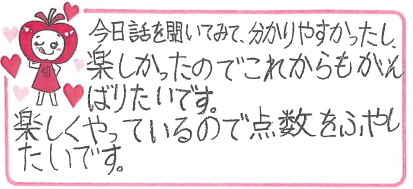 今日話を聞いてみて、分かりやすかったし、
楽しかったのでこれからもがん
ばりたいです。
楽しくやっているので点数をふやし
たいです。